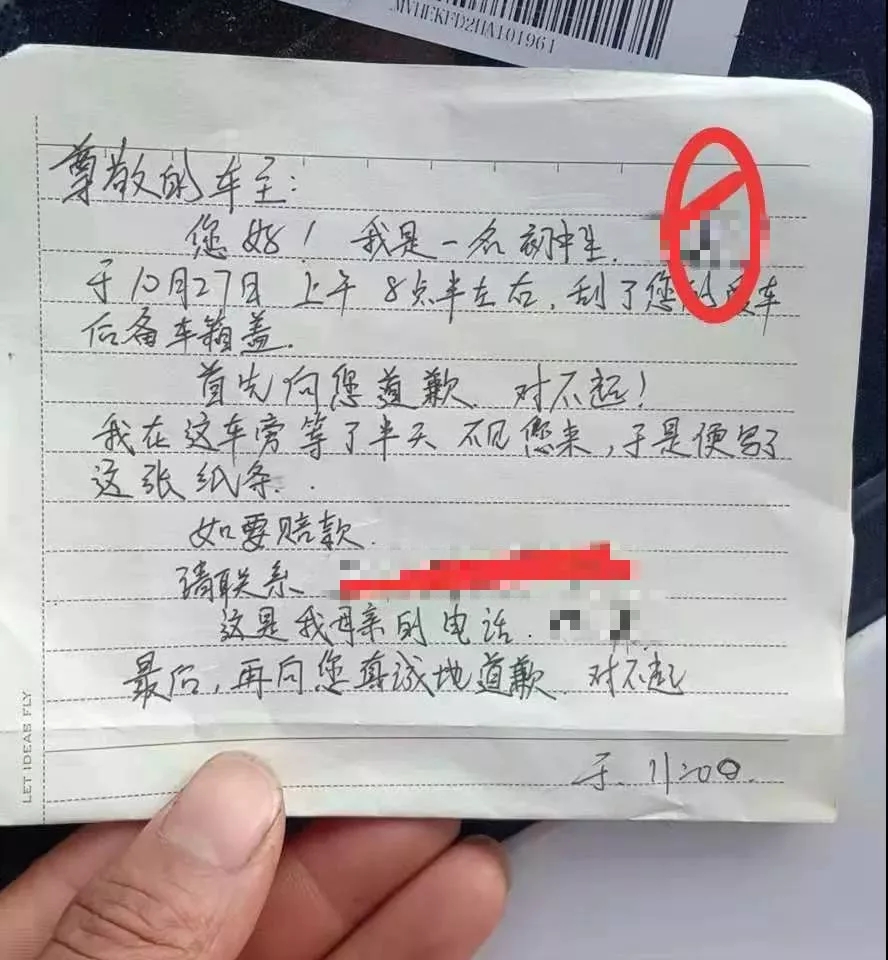 MVHEKFD2HA101961
尊敬的车主：
您好！我是一名初中生.
于10月27日 上午 8点半左右，刮了您的爱车
后备车箱盖.
首先向您道歉. 对不起！
我在这车旁等了半天 不见您来，于是便写了
这张纸条..
如要赔款.
请联系
这是我母亲的电话.
最后，再向您真诚地道歉. 对不起
于. 11:00.
LET IDEAS FLY